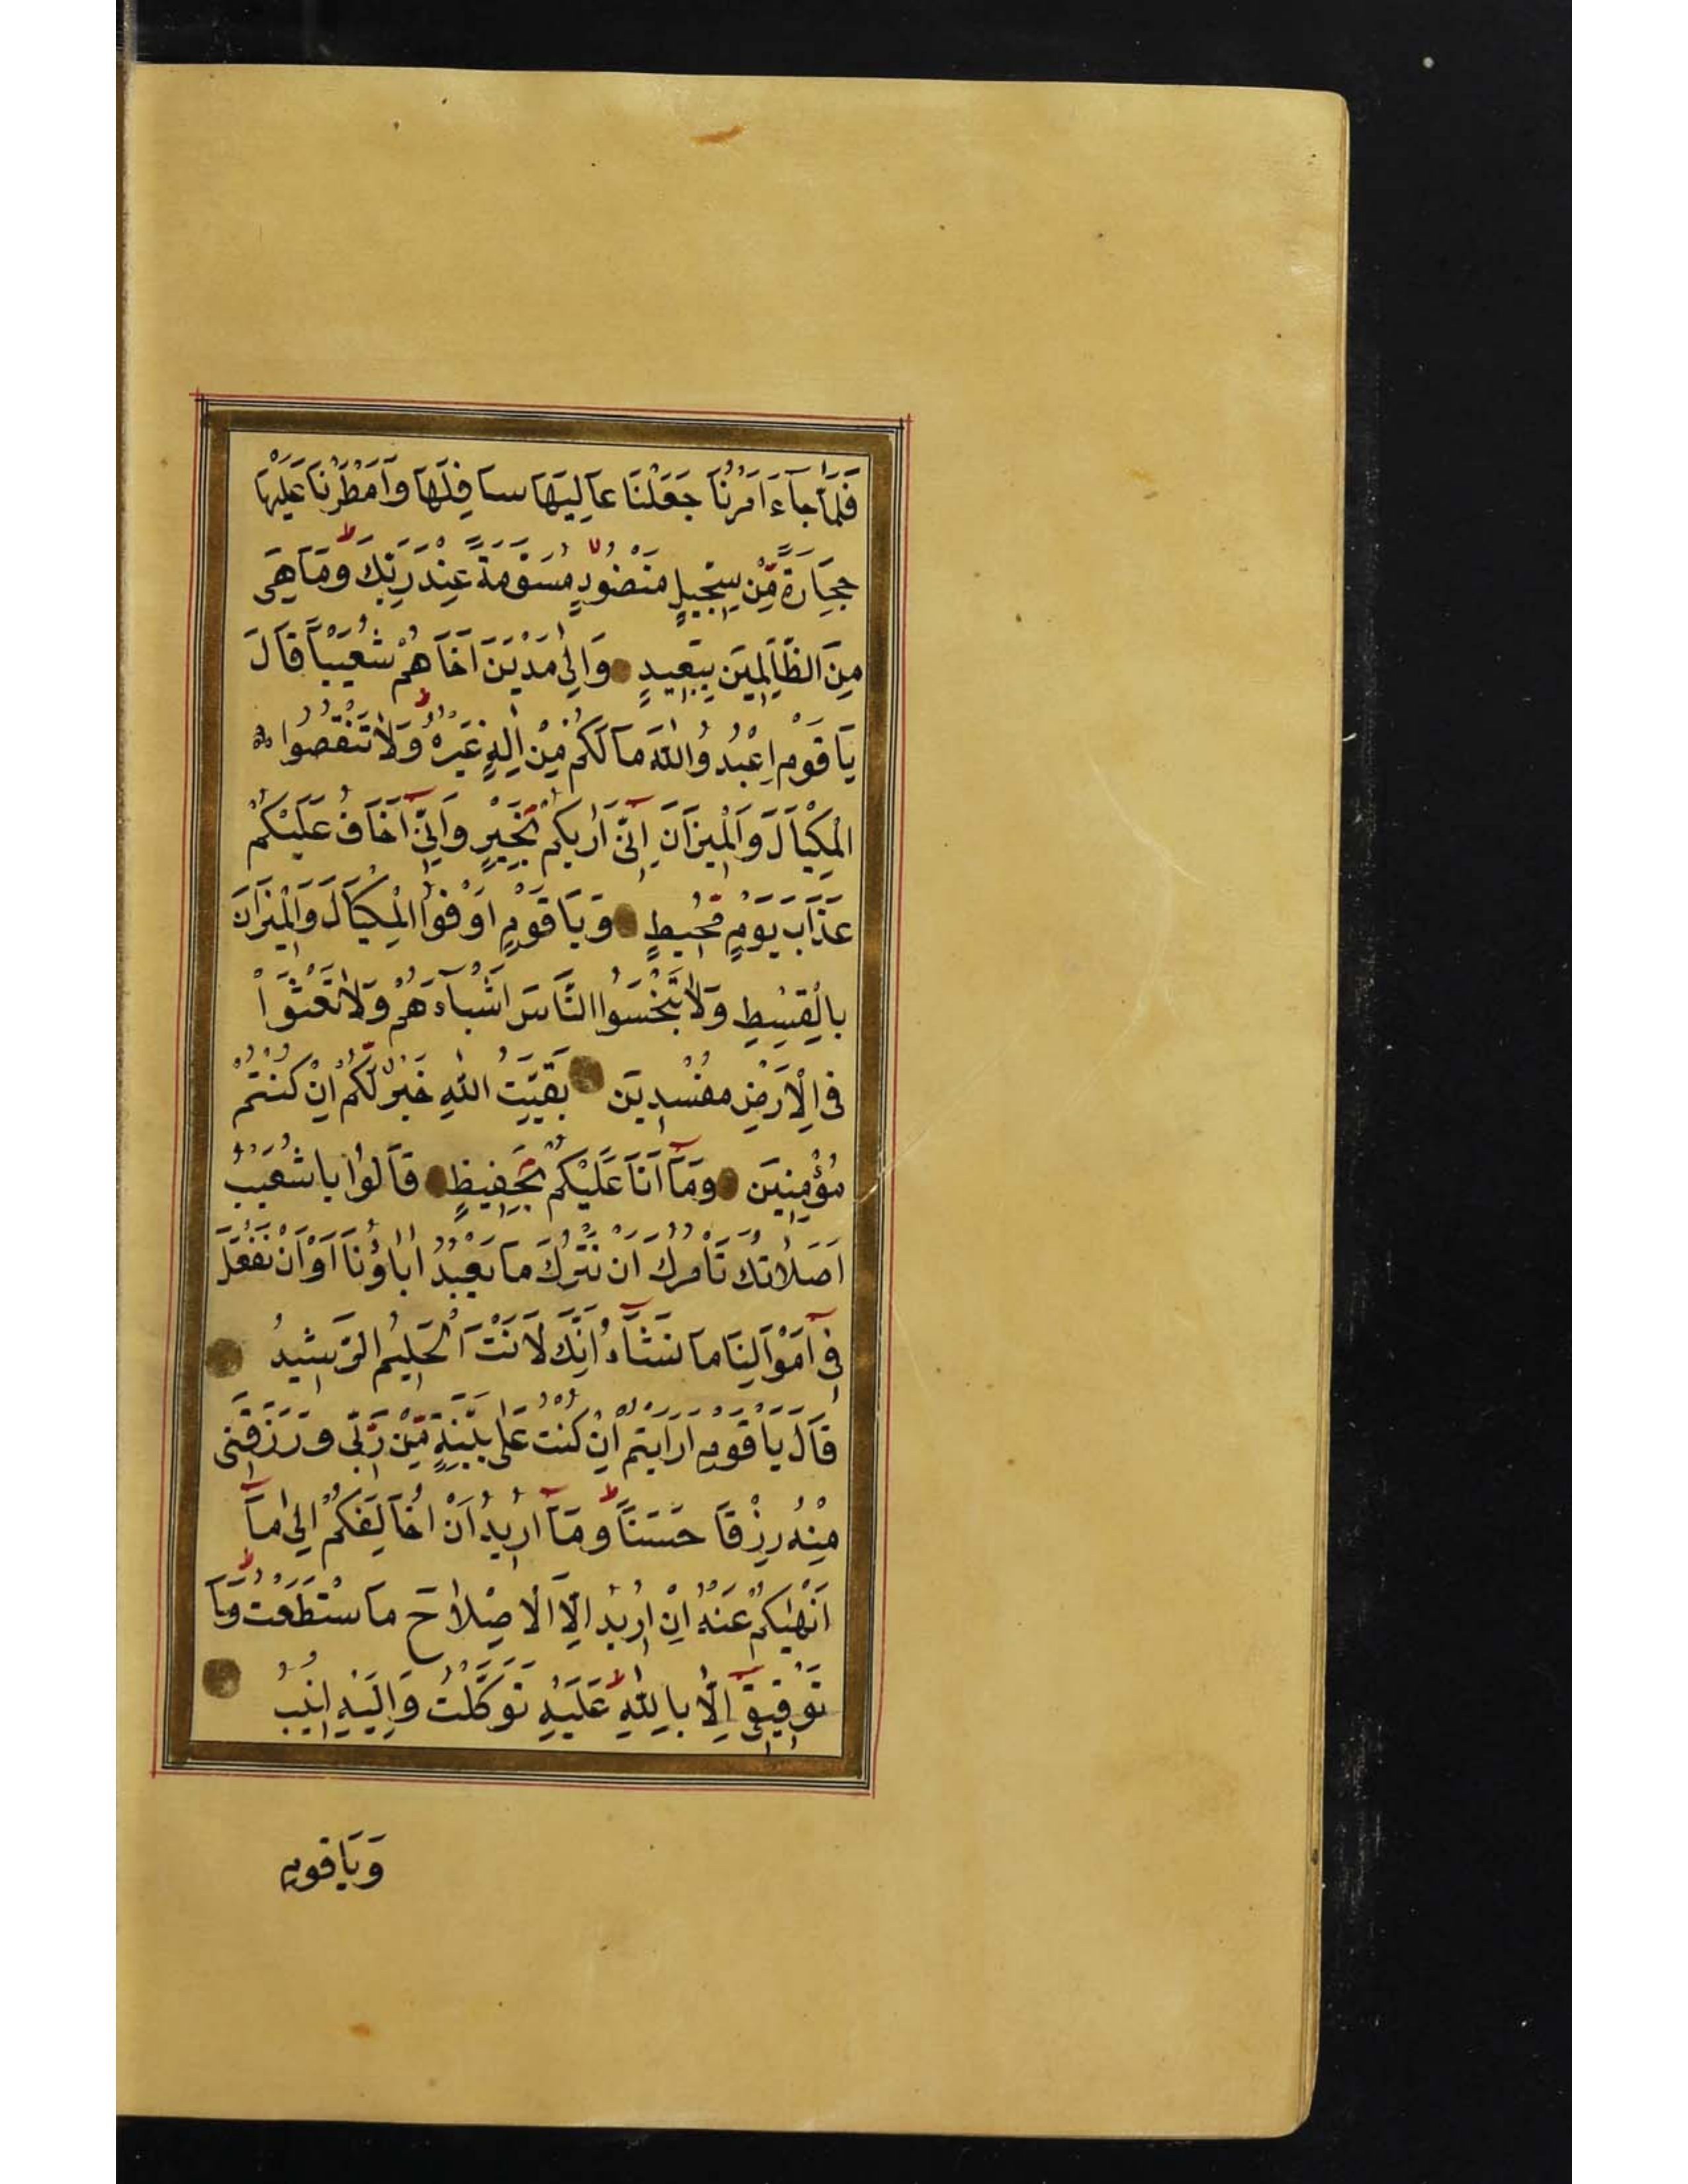 فَلَمَّا جَآءَ اَمْرُنَا جَعَلْنَا عَالِيَهَا سَافِلَهَا وَاَمْطَرْنَا عَلَيْهَا
حِجَارَةً مِّنْ سِجِّيلٍ مَنْضُودٍ مُسَوَّمَةً عِنْدَ رَبِّكَ وَمَا هِىَ
مِنَ الظَّالِمِينَ بِبَعِيدٍ وَاِلٰى مَدْيَنَ اَخَاهُمْ شُعَيْبًا قَالَ
يَا قَوْمِ اعْبُدُوا اللّٰهَ مَا لَكُمْ مِنْ اِلٰهٍ غَيْرُهُ وَلَا تَنْقُصُوا
الْمِكْيَالَ وَالْمِيزَانَ اِنِّىٓ اَرٰيكُمْ بِخَيْرٍ وَاِنِّىٓ اَخَافُ عَلَيْكُمْ
عَذَابَ يَوْمٍ مُّحِيطٍ وَيَا قَوْمِ اَوْفُوا الْمِكْيَالَ وَالْمِيزَانَ
بِالْقِسْطِ وَلَا تَبْخَسُوا النَّاسَ اَشْيَآءَهُمْ وَلَا تَعْثَوْا
فِى الْاَرْضِ مُفْسِدِينَ بَقِيَّتُ اللّٰهِ خَيْرٌ لَّكُمْ اِنْ كُنْتُمْ
مُؤْمِنِينَ وَمَآ اَنَا عَلَيْكُمْ بِحَفِيظٍ قَالُوا يَا شُعَيْبُ
اَصَلَاتُكَ تَأْمُرُكَ اَنْ نَتْرُكَ مَا يَعْبُدُ اٰبَاؤُنَا اَوْ اَنْ نَفْعَلَ
فِىٓ اَمْوَالِنَا مَا نَشَآءُ اِنَّكَ لَاَنْتَ الْحَلِيمُ الرَّشِيدُ
قَالَ يَا قَوْمِ اَرَاَيْتُمْ اِنْ كُنْتُ عَلٰى بَيِّنَةٍ مِّنْ رَّبِّى وَرَزَقَنِى
مِنْهُ رِزْقًا حَسَنًا وَمَآ اُرِيدُ اَنْ اُخَالِفَكُمْ اِلٰى مَآ
اَنْهٰيكُمْ عَنْهُ اِنْ اُرِيدُ اِلَّا الْاِصْلَاحَ مَا سْتَطَعْتُ وَمَا
تَوْفِيقِىٓ اِلَّا بِاللّٰهِ عَلَيْهِ تَوَكَّلْتُ وَاِلَيْهِ اُنِيبُ
وَيَا قَوْمِ